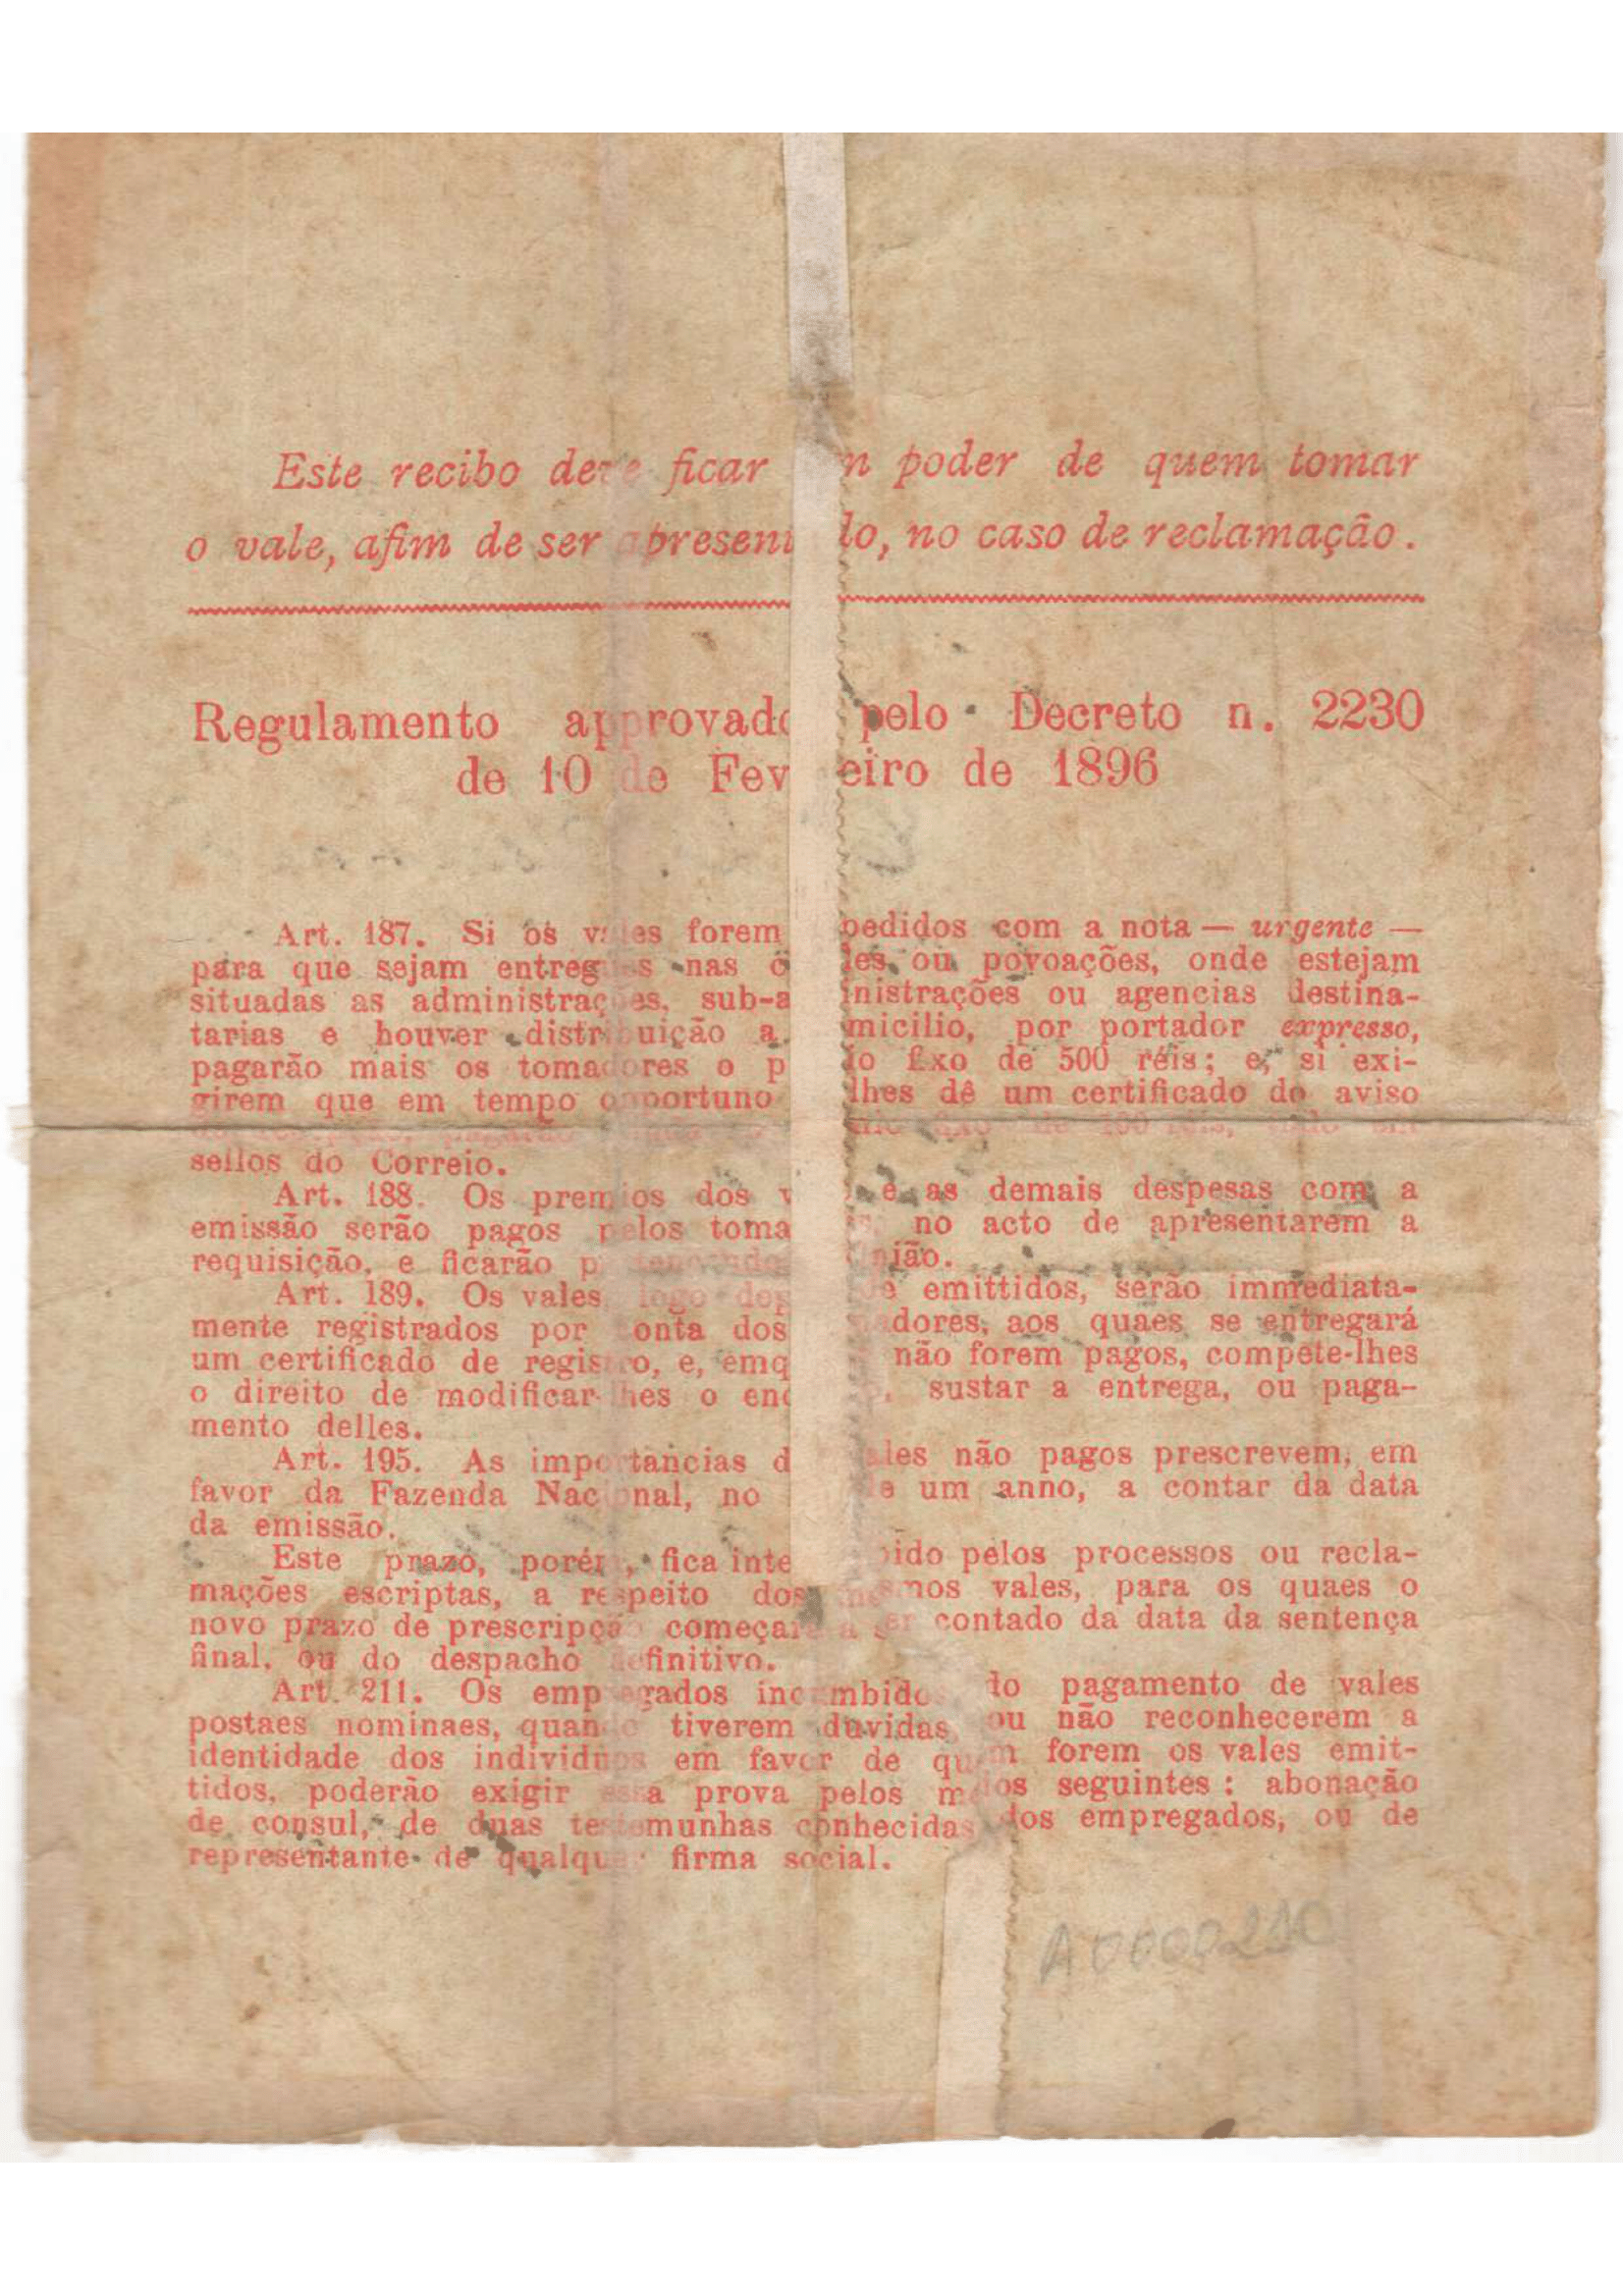 Este recibo deve ficar em poder de quem tomar
o vale, afim de ser apresentado, no caso de reclamação.
Regulamento approvado pelo Decreto n. 2230
de 10 de Fevereiro de 1896
Art. 187. Si os vales forem expedidos com a nota — urgente —
para que sejam entregues nas cidades ou povoações, onde estejam
situadas as administrações, sub-administrações ou agencias destina-
tarias e houver distribuição a domicilio, por portador expresso,
pagarão mais os tomadores o premio fixo de 500 réis; e, si exi-
girem que em tempo opportuno lhes dê um certificado do aviso
fixo de 100 réis,
sellos do Correio.
Art. 188. Os premios dos vales e as demais despesas com a
emissão serão pagos pelos tomadores no acto de apresentarem a
requisição, e ficarão pertencendo União.
Art. 189. Os vales, logo depois de emittidos, serão immediata-
mente registrados por conta dos tomadores, aos quaes se entregará
um certificado de registro, e, emquanto não forem pagos, compete-lhes
o direito de modificar-lhes o endereço, sustar a entrega, ou paga-
mento delles.
Art. 195. As importancias dos vales não pagos prescrevem, em
favor da Fazenda Nacional, no de um anno, a contar da data
da emissão.
Este prazo, porém, fica interrompido pelos processos ou recla-
mações escriptas, a respeito dos mesmos vales, para os quaes o
novo prazo de prescripção começará a ser contado da data da sentença
final, ou do despacho definitivo.
Art. 211. Os empregados incumbidos do pagamento de vales
postaes nominaes, quando tiverem duvidas, ou não reconhecerem a
identidade dos individuos em favor de quem forem os vales emit-
tidos, poderão exigir essa prova pelos meios seguintes: abonação
de consul, de duas testemunhas conhecidas dos empregados, ou de
representante de qualquer firma social.
A0000210